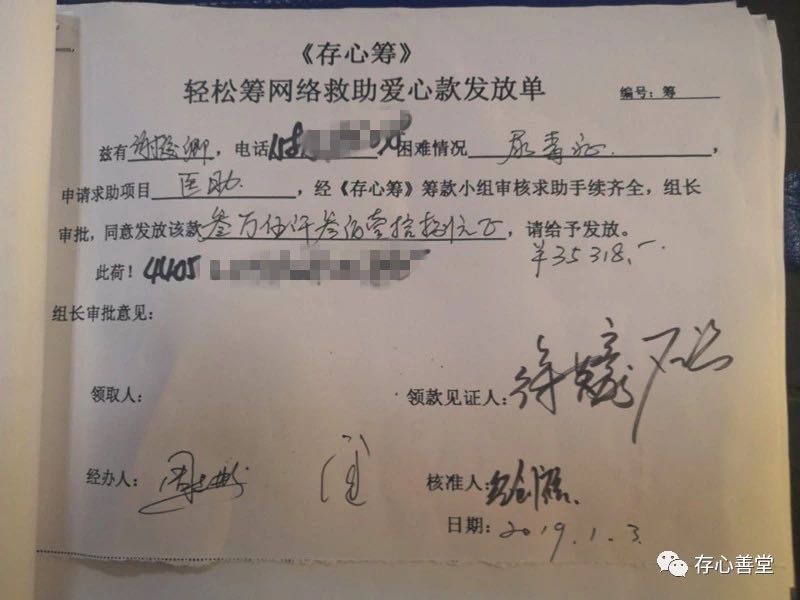 《存心筹》
轻松筹网络救助爱心款发放单
编号：筹
兹有谢 卿，电话 ，困难情况 尿毒症 ，
申请求助项目 医助 ，经《存心筹》筹款小组审核求助手续齐全，组长
审批，同意发放该款叁万伍仟叁佰壹拾捌元正，请给予发放。
¥35318.-
此荷！4405
组长审批意见：
领取人：
领款见证人：徐
经办人：周
核准人：
日期：2019.1.3
存心善堂